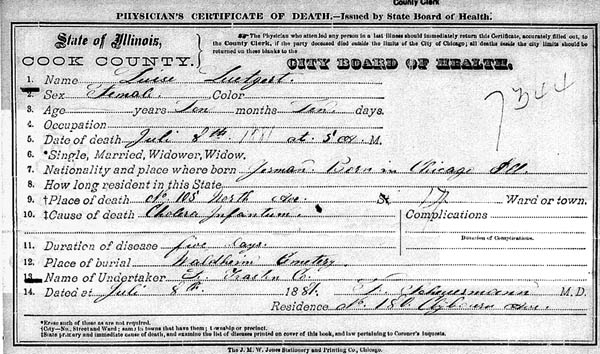 County Clerk
PHYSICIAN'S CERTIFICATE OF DEATH.—Issued by State Board of Health.
State of Illinois,
COOK COUNTY.
☞The Physician who attended any person in a last illness should immediately return this Certificate, accurately filled out, to
the County Clerk, if the party deceased died outside the limits of the City of Chicago; all deaths inside the city limits should be
returned on these blanks to the
CITY BOARD OF HEALTH.
1. Name Luise Luetgert.
2. Sex Female. Color
7344
3. Age years Ten months Ten days.
4. Occupation
5. Date of death Juli 8th 1881 at 5 M.
6. *Single, Married, Widower, Widow.
7. Nationality and place where born German. Born in Chicago Ill.
8. How long resident in this State
9. †Place of death No 105 North Av. St 17 Ward or town.
10. ‡Cause of death Cholera Infantum. Complications
Duration of Complications.
11. Duration of disease five days.
12. Place of burial Waldheim Cemetery.
13. Name of Undertaker Co.
14. Dated at Juli 8th. 1881. F. M. D.
Residence No 180 Clybourn Av.
*Erase such of these as are not required.
†City—No., Street and Ward; same in towns that have them; township or precinct.
‡State primary and immediate cause of death, and examine the list of diseases printed on cover of this book, and law pertaining to Coroner's Inquests.
The J. M. W. Jones Stationery and Printing Co., Chicago.